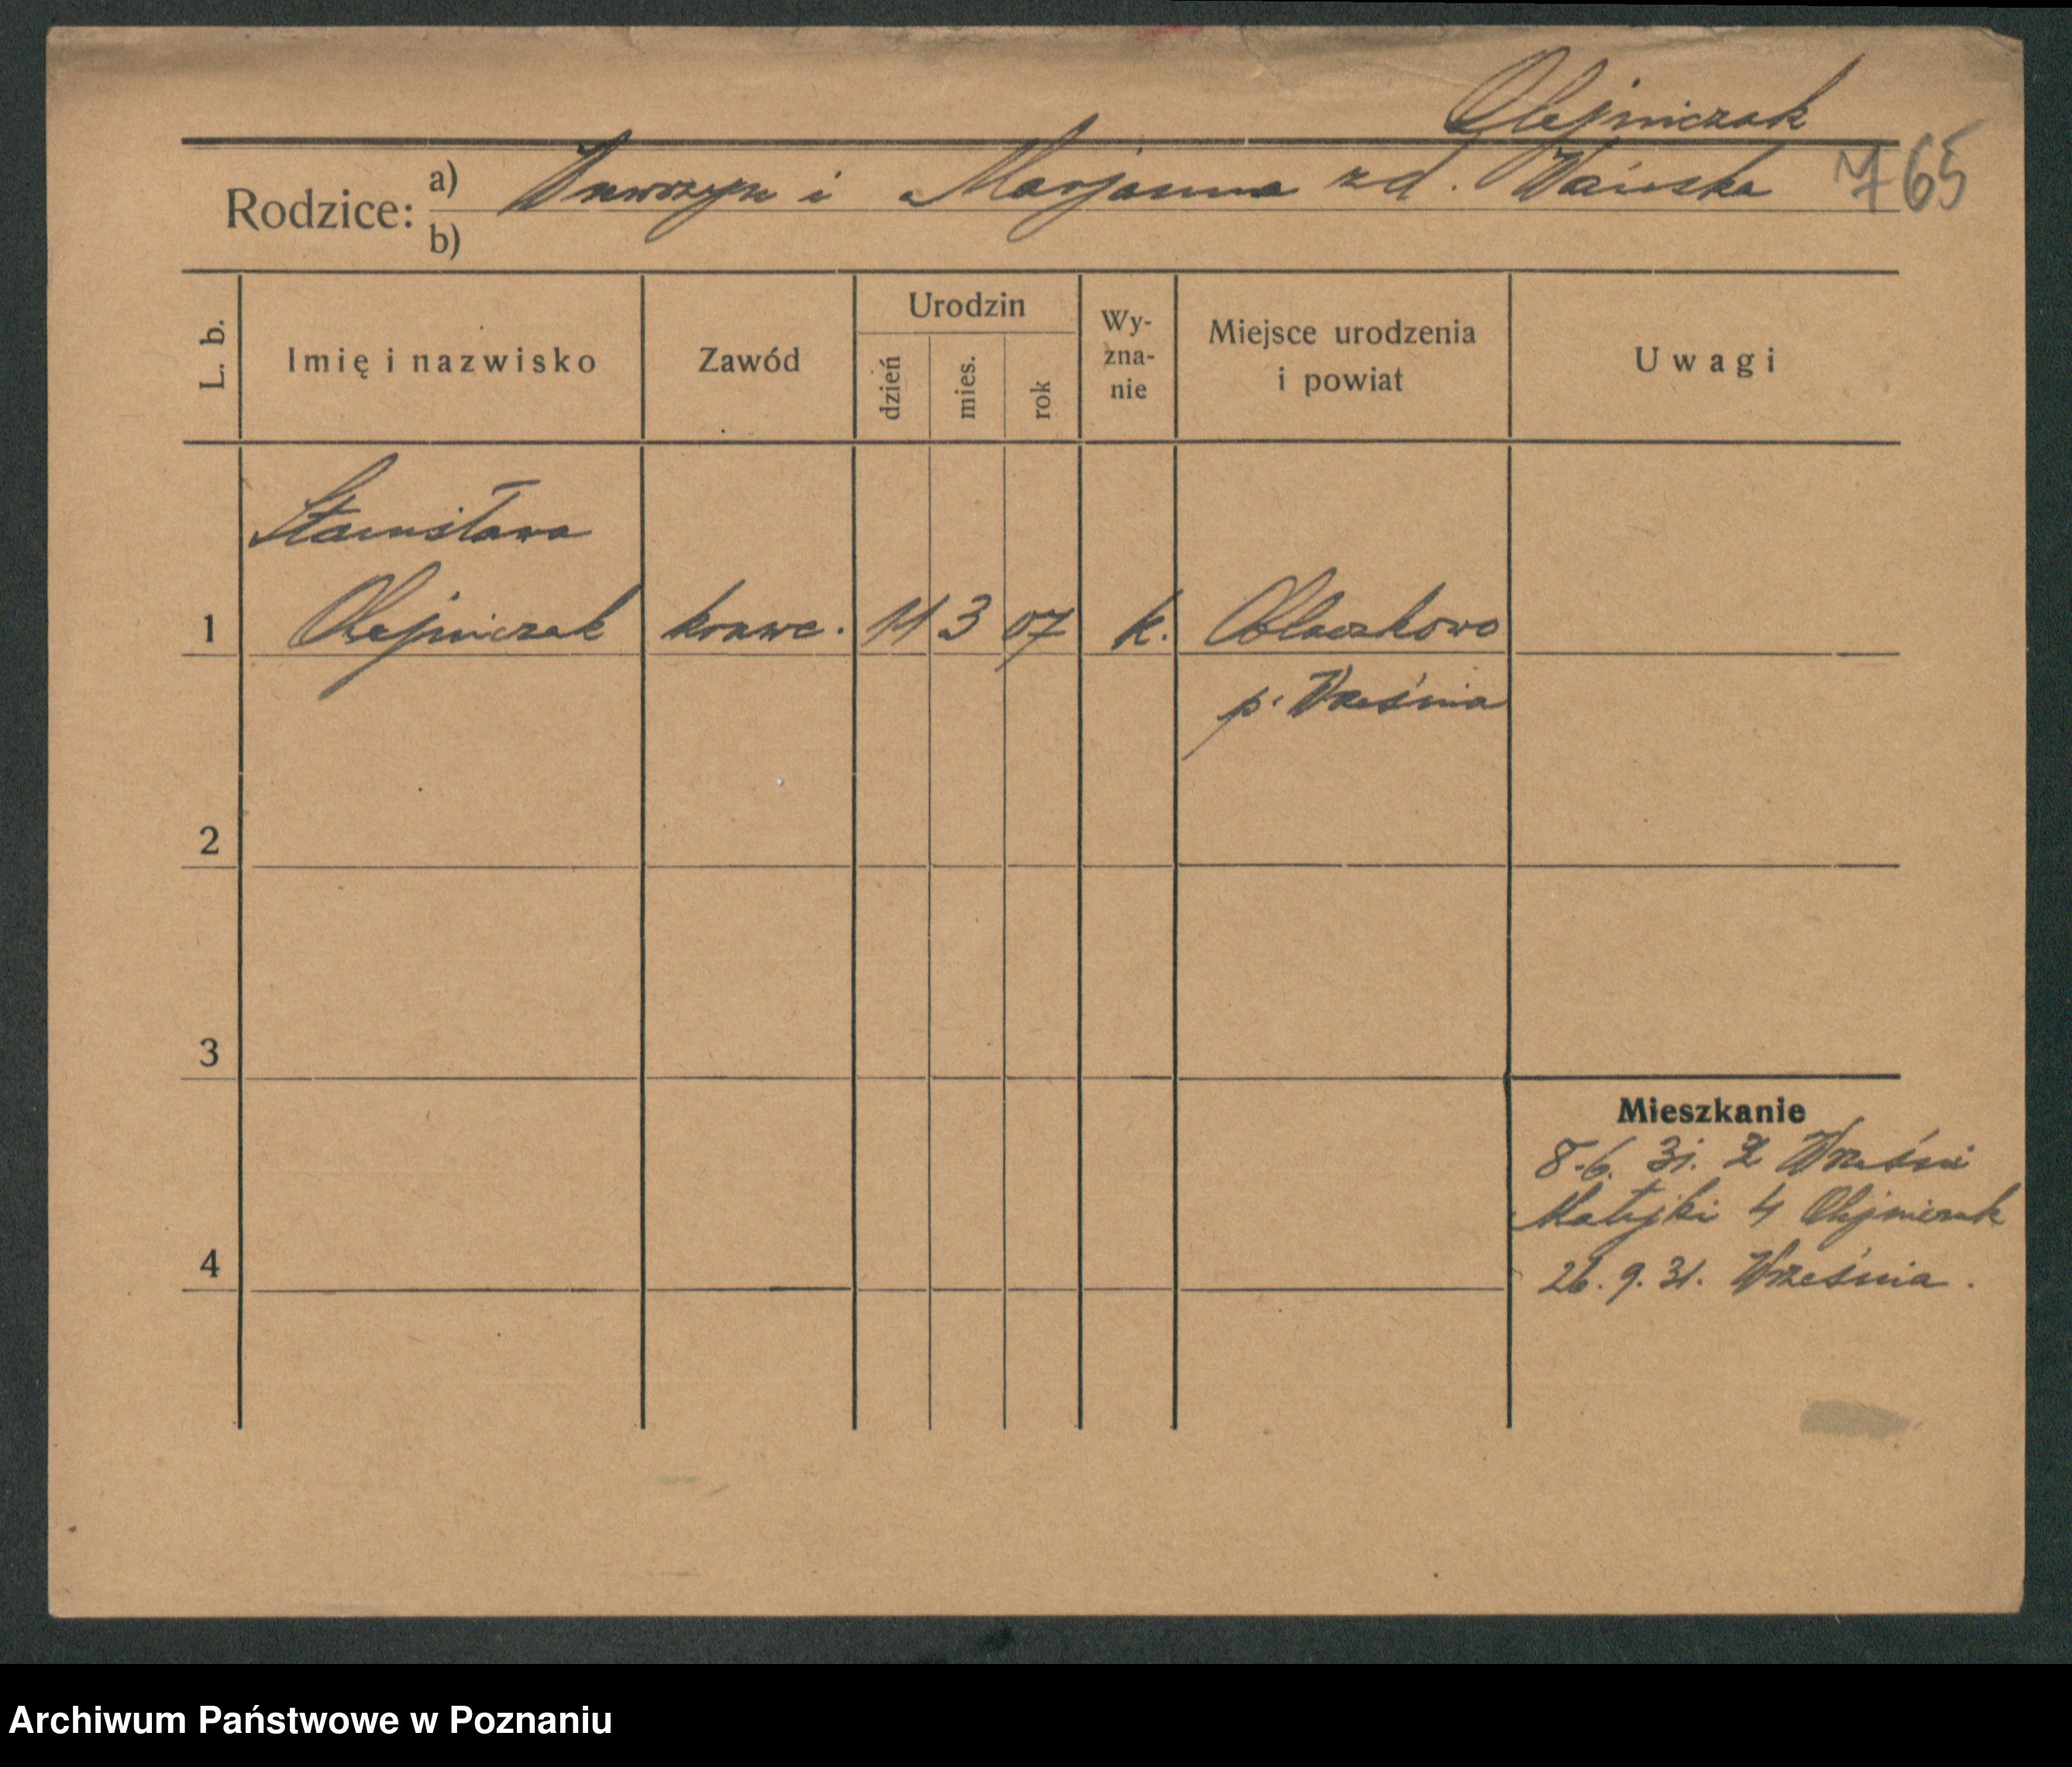 Olejniczak
Rodzice: a) Wawrzyn i Marjanna zd. Wańska 765
b)
L. b. Imię i nazwisko Zawód Urodzin dzień mies. rok Wy-zna-nie Miejsce urodzenia i powiat Uwagi
Stanisława
1 Olejniczak krawc. 11 3 07 k. Oblaczkowo
p. Września
2
3
Mieszkanie
8.6. 31. z Wrześni
Matejki 4 Olejniczak
4 26. 9. 31. Września.
Archiwum Państwowe w Poznaniu